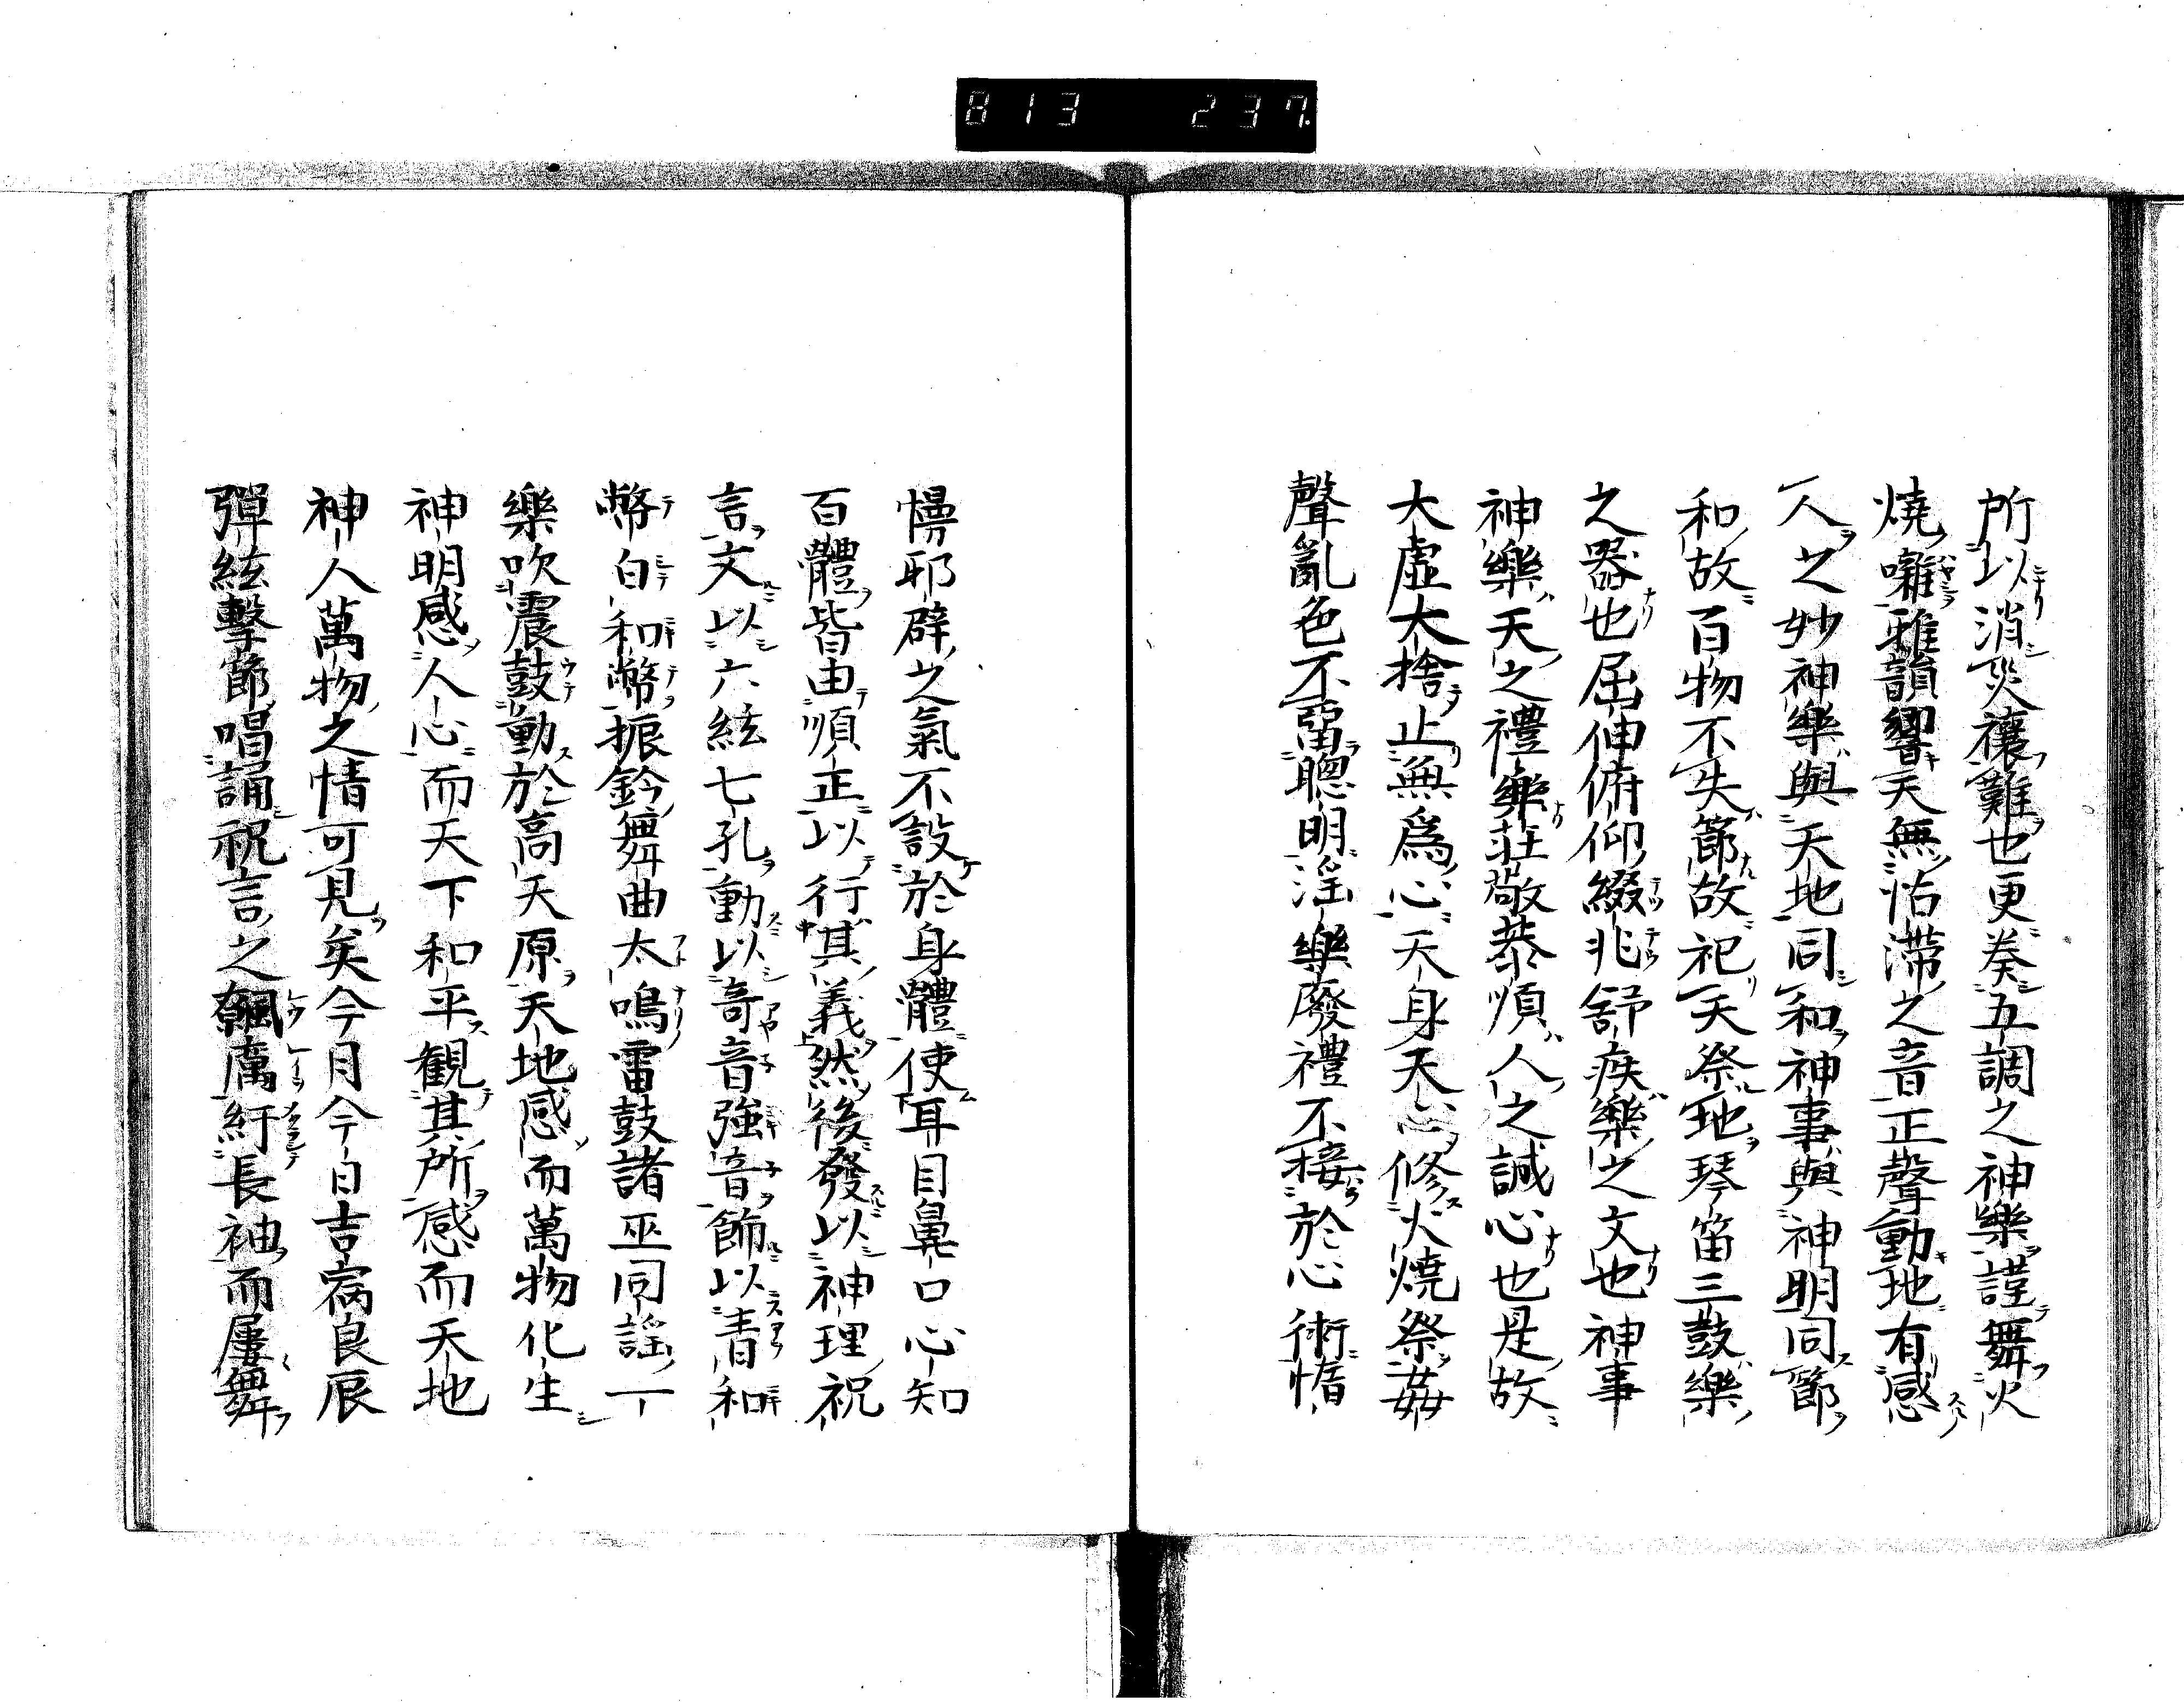 813 237
所以消災禳難也更奏五調之神樂謹舞火
燒囃雅韻響天無怗滯之音正聲動地有感
人之妙神樂與天地同和神事與神明同節
和故百物不失節故祀天祭地琴笛三鼓樂
之器也屈伸俯仰綴兆舒疾樂之文也神事
神樂天之禮樂莊敬恭順人之誠心也是故
大虛大捨止無爲心天身天心修火燒祭姦
聲亂色不留聰明淫樂廢禮不接於心術惰
慢邪辟之氣不設於身體使耳目鼻口心知
百體皆由順正以行其義然後發以神理祝
言文以六絃七孔動以奇音強音飾以青和
幣白和幣振鈴舞曲太鳴雷鼓諸巫同謡一
樂吹震鼓動於高天原天地感而萬物化生
神明感人心而天下和平観其所感而天地
神人萬物之情可見矣今月今日吉良辰
彈絃擊節唱誦祝言之颻颺紆長袖而屢舞